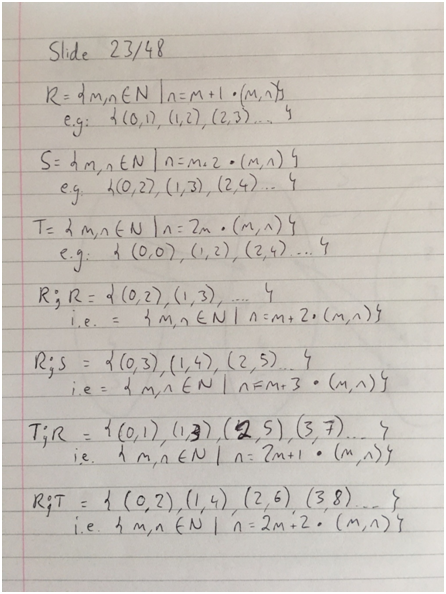 Slide 23/48
R = { m,n ∈ N | n = m+1 • (m,n)}
e.g: {(0,1), (1,2), (2,3) .... }
S = { m,n ∈ N | n = m+2 • (m,n) }
e.g. {(0,2), (1,3), (2,4) ... }
T = { m,n ∈ N | n = 2m • (m,n) }
e.g: { (0,0), (1,2), (2,4) .... }
R;R = { (0,2), (1,3), .... }
i.e. = { m,n ∈ N | n = m+2 • (m,n) }
R;S = { (0,3), (1,4), (2,5) ... }
i.e = { m,n ∈ N | n = m+3 • (m,n) }
T;R = { (0,1), (1,3), (2,5), (3,7) .... }
i.e. { m,n ∈ N | n = 2m+1 • (m,n) }
R;T = { (0,2), (1,4), (2,6) (3,8) .... }
i.e. { m,n ∈ N | n = 2m+2 • (m,n) }